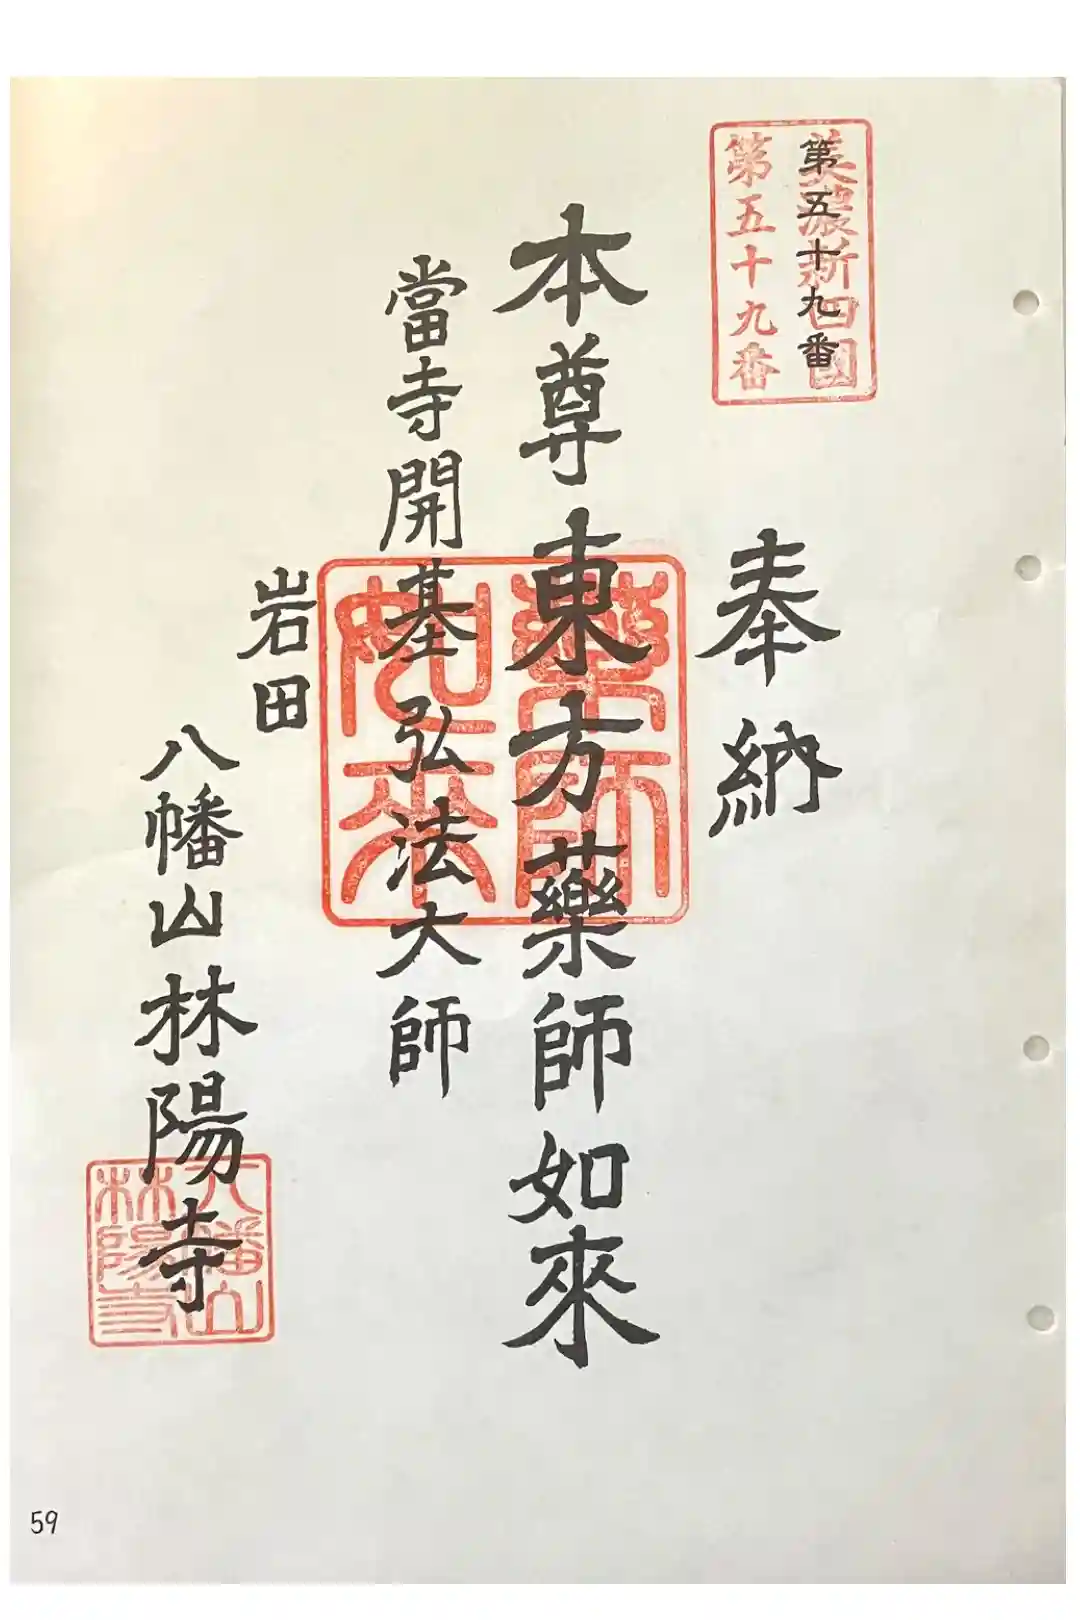 美濃新四國
第五十九番
第五十九番
奉納
本尊東方藥師如來
當寺開基弘法大師
藥師
如来
岩田
八幡山林陽寺
八幡山
林陽寺
59